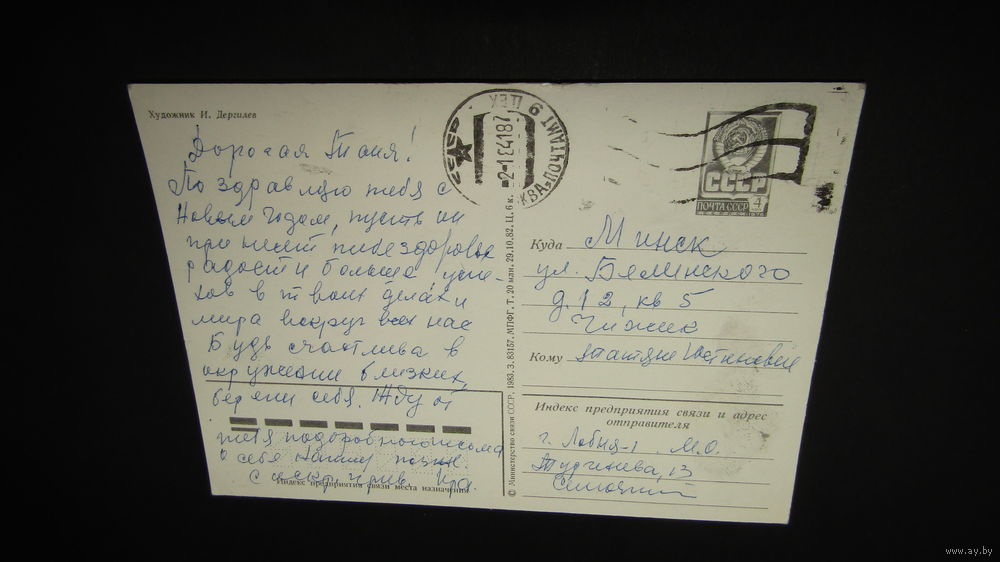 Художник И. Дергилев
Дорогая Таня!
Поздравляю тебя с
Новым годом, пусть он
принесет тебе здоровье
радости и больше успе-
хов в твоих делах и
мира вокруг всех нас
Будь счастлива в
окружении близких,
береги себя. Жду от
тебя подробного письма
о себе
с искр. прив.
Индекс предприятия связи места назначения
© Министерство связи СССР, 1983. З. 83157. МПФГ. Т. 20 млн. 29.10.82. Ц. 6 к.
СССР
ПОЧТАМТ
ЦЕХ 6
-2-1 84 18
СССР
ПОЧТА СССР
4
Куда Минск
ул. Белинского
д. 12, кв 5
Чижик
Кому Татьяне
Индекс предприятия связи и адрес
отправителя
г. Лобня-1 М.О.
Тургенева, 13
www.ay.by